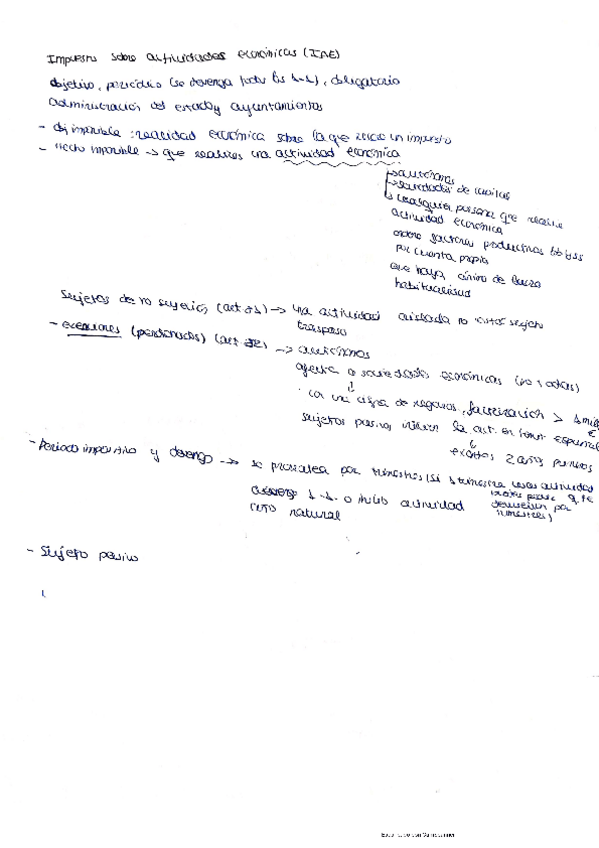 Impuesto sobre actividades económicas (IAE)
objetivo, periódico (se devenga todos los 1-1), obligatorio
administración del estado y ayuntamientos
- obj imponible: realidad económica sobre la que recae un impuesto
- Hecho imponible -> que realices una actividad económica
autónomos
sociedades de civiles
cualquier persona que realice
actividad económica
ordene factores productivos
por cuenta propia
que haya ánimo de lucro
habitualidad
Supuestos de no sujeción (art 81) -> una actividad aislada no estás sujeto
traspaso
- exenciones (personarios) (art 82) -> autónomos
afecta a sociedades económicas (no todas)
la cifra de negocios, facturación > 1 mill €
sujetos pasivos inicien la act. en territ español
exentos 2 años primeros
- Periodo impositivo y devengo -> se prorratea por trimestres (si 1 trimestre cesas actividad
devengo 1-1 o inicio actividad
año natural
puedes q te devuelvan por trimestres)
- Sujeto pasivo